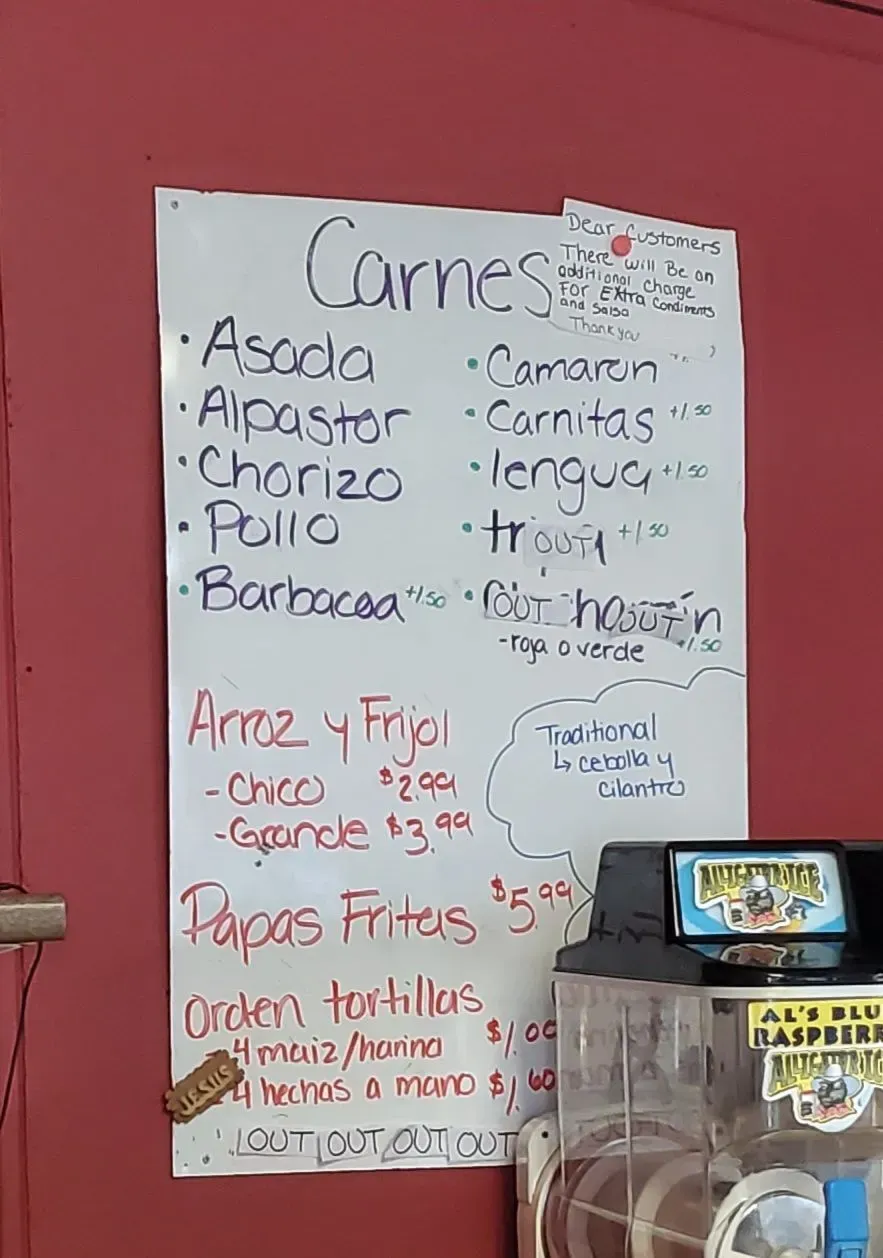 Carnes
Dear Customers
There will Be an
additional charge
For Extra Condiments
and Salsa
Thank you
• Asada
• Alpastor
• Chorizo
• Pollo
• Barbacoa +1.50
• Camaron
• Carnitas +1.50
• lengua +1.50
• tr OUT +1.50
• OUT ho OUT n
-roja o verde +1.50
Arroz y Frijol
- Chico $2.99
- Grande $3.99
Traditional
↳ cebolla y
cilantro
Papas Fritas $5.99
Orden tortillas
- 4 maiz/harina $1.00
- 4 hechas a mano $1.60
JESUS
OUT OUT OUT OUT
ALLIGATOR ICE
AL'S BLU
RASPBERR
ALLIGATOR IC